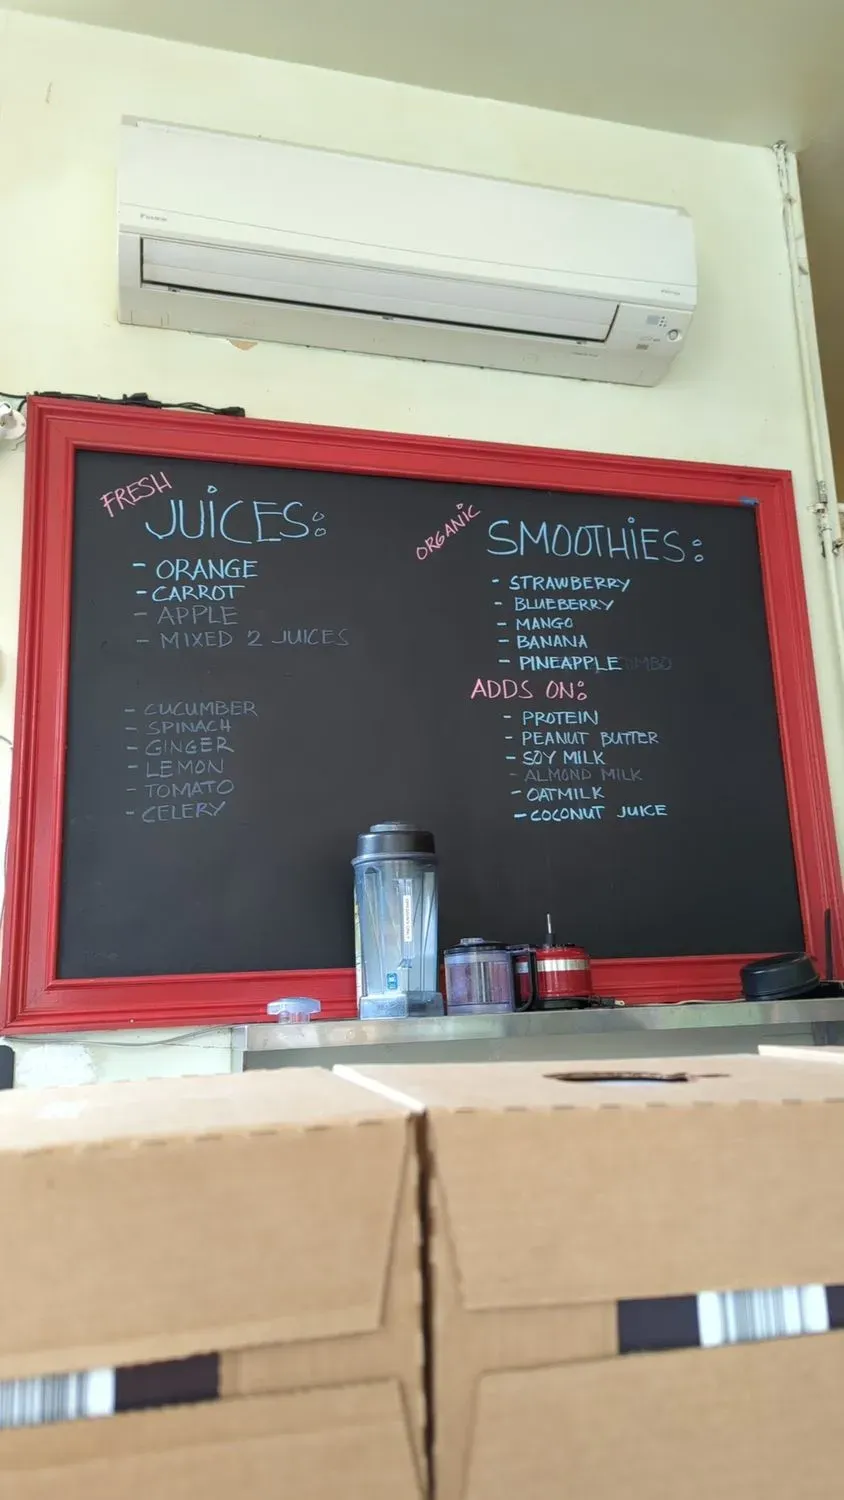 FRESH
JUICES:
- ORANGE
- CARROT
- APPLE
- MIXED 2 JUICES
- CUCUMBER
- SPINACH
- GINGER
- LEMON
- TOMATO
- CELERY
ORGANIC
SMOOTHIES:
- STRAWBERRY
- BLUEBERRY
- MANGO
- BANANA
- PINEAPPLE
ADDS ON:
- PROTEIN
- PEANUT BUTTER
- SOY MILK
- ALMOND MILK
- OATMILK
- COCONUT JUICE